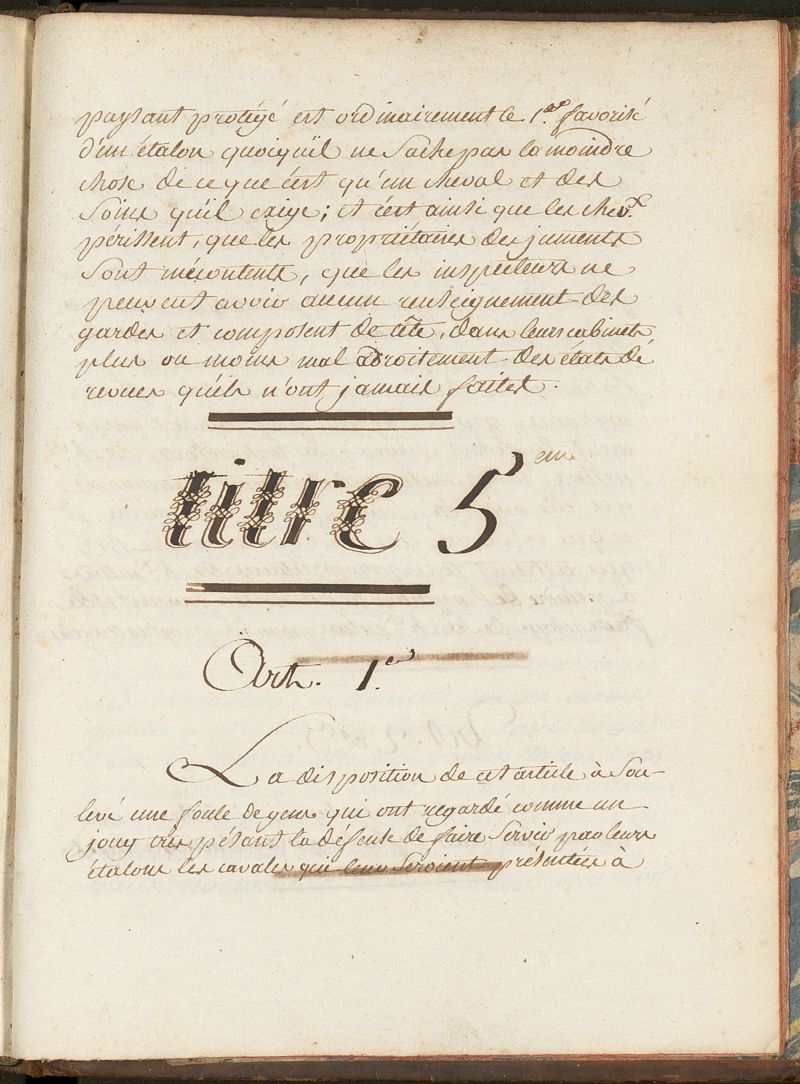 paysant protégé est ordinairement le 1.er favorisé
d'un étalon quoiqu'il ne sache pas la moindre
chose de ce que c'est qu'un cheval et des
soins qu'il exige; et c'est ainsi que les chev.x
périssent, que les propriétaires des juments
sont mécontents, que les inspecteurs ne
peuvent avoir aucun renseignement des
gardes et composent de tête, dans leurs cabinets
plus ou moins mal adroitement des états de
revues qu'ils n'ont jamais faites.
titre 5eme
Art. 1.er
La disposition de cet article à sou-
levé une foule de gens qui ont regardé comme un
joug très pésant la défense de faire servir par leurs
étalons les cavales qui leur seroient présentées à